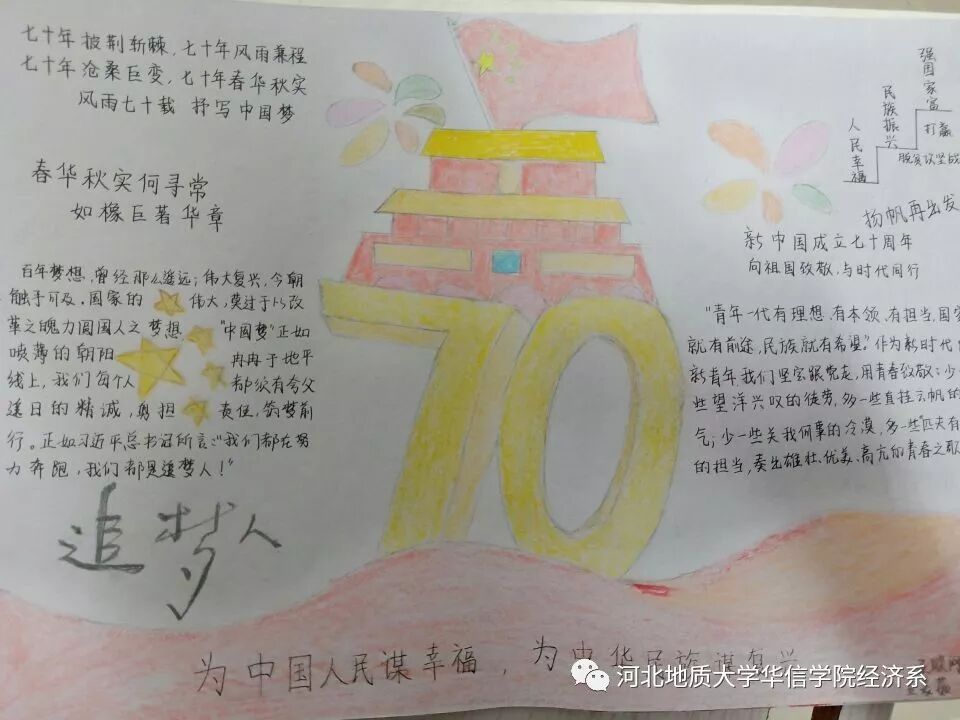 七十年披荆斩棘,七十年风雨兼程
七十年沧桑巨变,七十年春华秋实
风雨七十载 抒写中国梦
春华秋实何寻常
如橡巨著华章
百年梦想,曾经那么遥远;伟大复兴,今朝
触手可及.国家的 伟大,莫过于以改
革之魄力圆国人之梦想, "中国梦"正如
喷薄的朝阳 冉冉于地平
线上,我们每个人 都须有夸父
逐日的精诚,勇担 责任,筑梦前
行。正如习近平总书记所言:"我们都在努
力奔跑,我们都是追梦人!"
追梦人
70
强国家富
民族振兴
人民幸福
打赢
脱贫攻坚战
扬帆再出发
新中国成立七十周年
向祖国致敬,与时代同行
"青年一代有理想,有本领,有担当,国家
就有前途,民族就有希望。"作为新时代
新青年,我们坚定跟党走,用青春致敬;少
些望洋兴叹的徒劳,多一些直挂云帆的
气;少一些关我何事的冷漠,多一些"匹夫有
的担当,奏出雄壮、优美、高亢的青春之歌
为中国人民谋幸福,为中华民族谋复兴
河北地质大学华信学院经济系